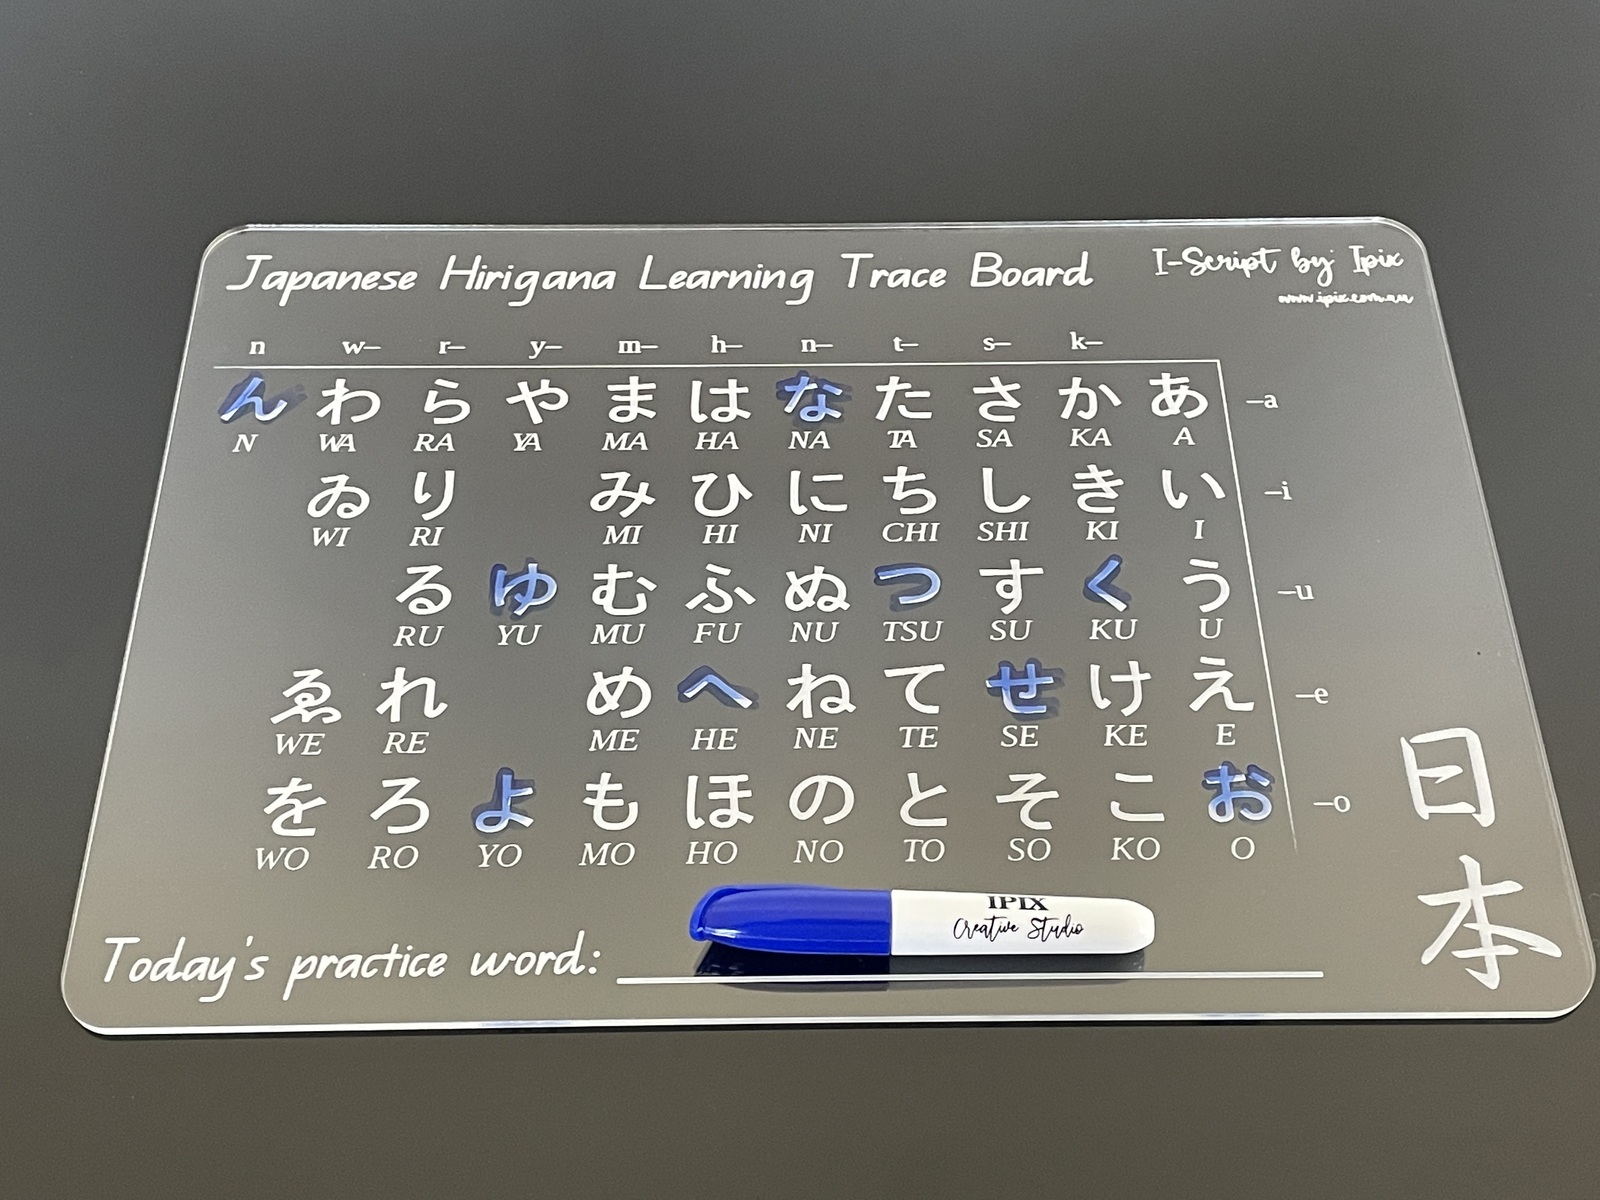 Japanese Hirigana Learning Trace Board
I-Script by Ipix
www.ipix.com.au
n w– r– y– m– h– n– t– s– k–
ん わ ら や ま は な た さ か あ –a
N WA RA YA MA HA NA TA SA KA A
ゐ り み ひ に ち し き い –i
WI RI MI HI NI CHI SHI KI I
る ゆ む ふ ぬ つ す く う –u
RU YU MU FU NU TSU SU KU U
ゑ れ め へ ね て せ け え –e
WE RE ME HE NE TE SE KE E
を ろ よ も ほ の と そ こ お –o
WO RO YO MO HO NO TO SO KO O
日本
IPIX
Creative Studio
Today's practice word: